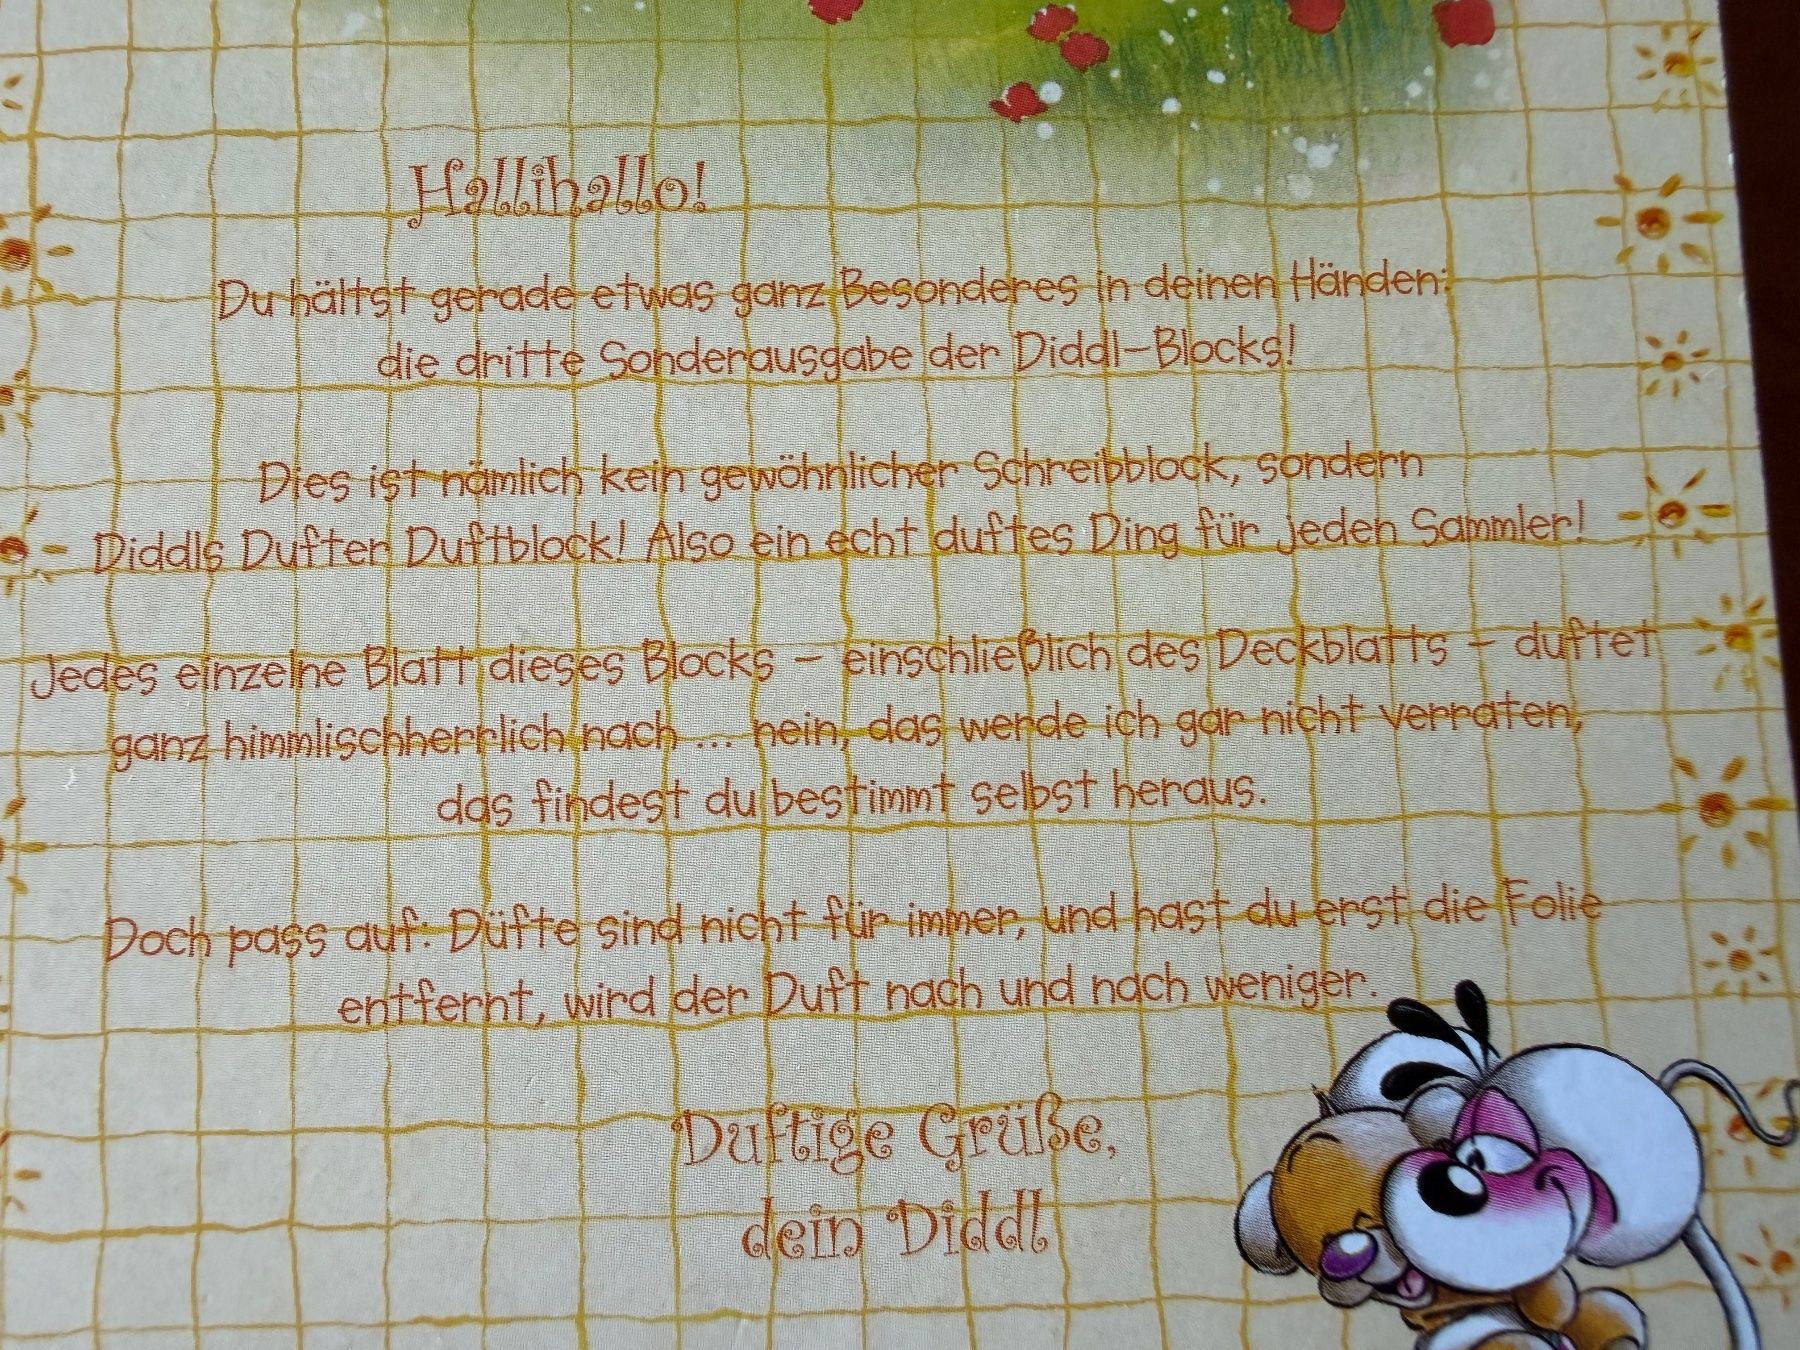 Hallihallo!
Du hältst gerade etwas ganz Besonderes in deinen Händen:
die dritte Sonderausgabe der Diddl-Blocks!
Dies ist nämlich kein gewöhnlicher Schreibblock, sondern
Diddls Dufter Duftblock! Also ein echt duftes Ding für jeden Sammler!
Jedes einzelne Blatt dieses Blocks – einschließlich des Deckblatts – duftet
ganz himmlischherrlich nach ... nein, das werde ich gar nicht verraten,
das findest du bestimmt selbst heraus.
Doch pass auf: Düfte sind nicht für immer, und hast du erst die Folie
entfernt, wird der Duft nach und nach weniger.
Duftige Grüße,
dein Diddl